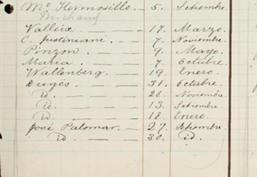 Mª Hermosillo. — 5. Setiembre
Michaux
Valleix — 17. Marzo.
C. Justiniani. — 7. Noviembre
Pinzon. — 9. Mayo.
Maria. — 7. Octubre
Wallenberg. — 19. Enero.
Dugés. — 31. Octubre.
id. — 28. Noviembre
id. — 13. Setiembre.
id. — 18. Enero.
José Palomar. — 27. Setiembre
id. — 30. id.